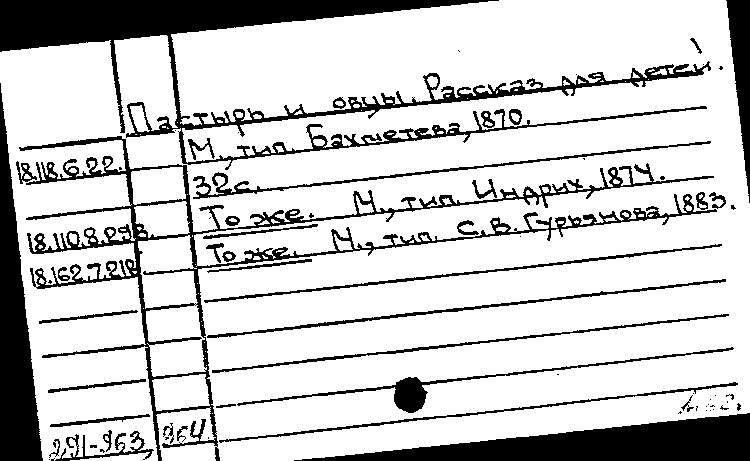 Пастырь и овцы. Рассказ для детей.
М., тип. Бахметева, 1870.
18.118.6.22.
32с.
То же. М., тип. Индрих, 1874.
18.110.8.298.
То же. М., тип. С.В. Гурьянова, 1883.
18.162.7.218
291-963, 964